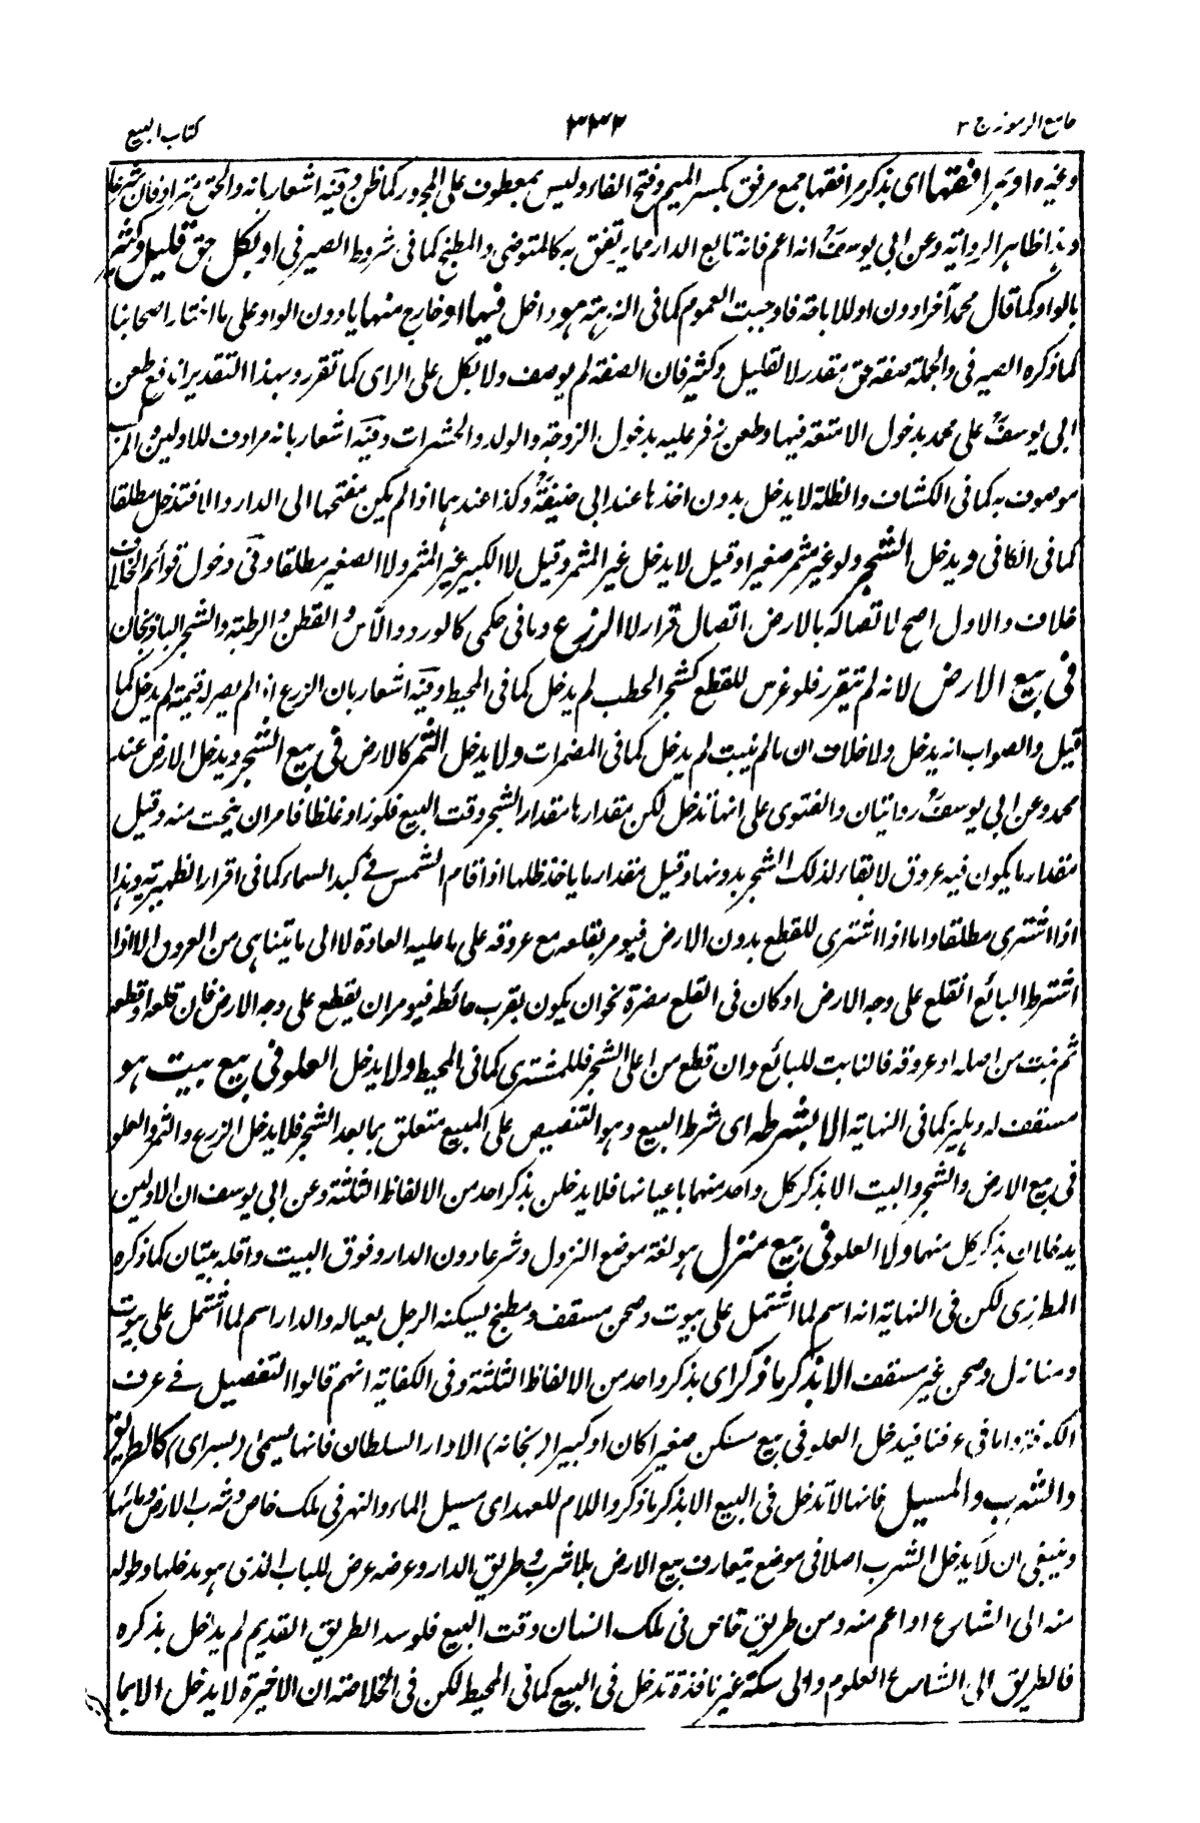 جامع الرموز ج ۲
۳۳۲
کتاب البیع
وغیره او بمرافقها ای بذکر مرافقها جمع مرفق بکسر المیم وفتح الفاء ولیس بمعطوف علی المجرور کما ظن وفیه اشعار بانه والحق مترادفان
وهذا ظاهر الروایة وعن ابی یوسف انه اعم فانه تابع الدار مما یرتفق به کالمتوضی والمطبخ کما فی شروط الصیرفی او بکل حق قلیل وکثیر
بالواو کما قال محمد آخرا دون او للاباحة فاوجبت العموم کما فی هو داخل فیها او خارج منها باو دون الواو علی ما اختار اصحابنا
کما ذکره الصیرفی والجملة صفة حق مقدر لا لقلیل وکثیر فان الصفة لم یوصف ولا لکل علی الرای کما تقرر وبهذا التقدیر اندفع طعن
ابی یوسف علی محمد بدخول الامتعة فیها وطعن زفر علیه بدخول الزوجة والولد والحشرات وفیه اشعار بانه مرادف للاولین
موصوف به کما فی الکشاف والظلة لا یدخل بدون اخذها عند ابی حنیفة وکذا عندهما اذا لم یکن مفتحها الی الدار والا فتدخل مطلقا
کما فی الکافی ویدخل الشجر ولو غیر مثمر صغیرا وقیل لا یدخل غیر المثمر وقیل لا الکبیر غیر المثمر ولا الصغیر مطلقا وفی دخول قوائم الخلاف
خلاف والاول اصح لاتصاله بالارض اتصال قرار لا الزرع وما فی حکمه کالورد والآس والقطن والرطبة والشجر الباذنجان
فی بیع الارض لانه لم یتقرر فلو غرس للقطع کشجر الحطب لم یدخل کما فی المحیط وفیه اشعار بان الزرع اذا لم یصر له قیمة لم یدخل کما
قیل والصواب انه یدخل ولا خلاف ان ما لم ینبت لم یدخل کما فی المضمرات ولا یدخل الثمر کالارض فی بیع الشجر ویدخل الارض عند
محمد وعن ابی یوسف روایتان والفتوی علی انها تدخل لکن مقدارها مقدار الشجر وقت البیع فلو زاد غلظا فامر ان ینحت منه وقیل
مقدار ما یکون فیه عروق لا بقاء لذلک الشجر بدونها وقیل مقدار ما یاخذ ظلها اذا قام الشمس فی کبد السماء کما فی اقرار الظهیریة وهذا
اذا اشتری مطلقا واما اذا اشتری للقطع بدون الارض فیومر بقلعه مع عروقه علی ما علیه العادة لا الی ما یتناهی من العروق الا اذا
اشترط البائع القلع علی وجه الارض او کان فی القلع مضرة نحو ان یکون بقرب حائطه فیومر ان یقطع علی وجه الارض فان قلعه او قطعه
ثم نبت من اصله او عروقه فالنابت للبائع وان قطع من اعلی الشجر فللمشتری کما فی المحیط ولا یدخل العلو فی بیع بیت هو
مسقف له دهلیز کما فی النهایة الا بشرطه ای شرط البیع وهو التنصیص علی المبیع متعلق بما بعد الشجر فلا یدخل الزرع والثمر والعلو
فی بیع الارض والشجر والبیت الا بذکر کل واحد منها باعیانها فلا یدخلن بذکر احد من الالفاظ الثلثة وعن ابی یوسف ان الاولین
یدخلان بذکر کل منهما ولا العلو فی بیع منزل هو لغة موضع النزول وشرعا دون الدار وفوق البیت واقله بیتان کما ذکره
المطرزی لکن فی النهایة انه اسم لما اشتمل علی بیوت وصحن مسقف ومطبخ لیسکنه الرجل بعیاله والدار اسم لما اشتمل علی بیوت
ومنازل وصحن غیر مسقف الا بذکر ما ذکر ای بذکر واحد من الالفاظ الثلثة وفی الکفایة انهم قالوا التفصیل فی عرف
الکوفة واما فی عرفنا فیدخل العلو فی بیع مسکن صغیرا کان او کبیرا (بخانه) الا دار السلطان فانها یسمی (بسرای) کالطریق
والشرب والمسیل فانها لا تدخل فی البیع الا بذکر ما ذکر واللام للعهد ای مسیل الماء والنهر فی ملک خاص وشرب الارض ومائها
وینبغی ان لا یدخل الشرب اصلا فی موضع یتعارف بیع الارض بلا شرب وطریق الدار وعرضه عرض للباب الذی هو مدخلها وطوله
منه الی الشارع او اعم منه ومن طریق خاص فی ملک انسان وقت البیع فلو سد الطریق القدیم لم یدخل بذکره
فالطریق الی الشارع العلوم والی سکة غیر نافذة تدخل فی البیع کما فی المحیط لکن فی الخلاصة ان الاخیرة لا یدخل الا بما